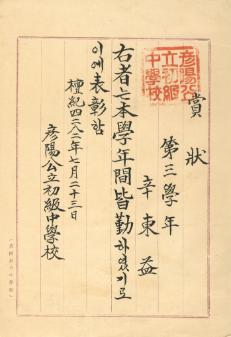 賞狀
彦陽公立初級中學校
第三學年
辛東益
右者는本學年間皆勤하였기로
이에表彰함
檀紀四二八二年七月二十三日
彦陽公立初級中學校